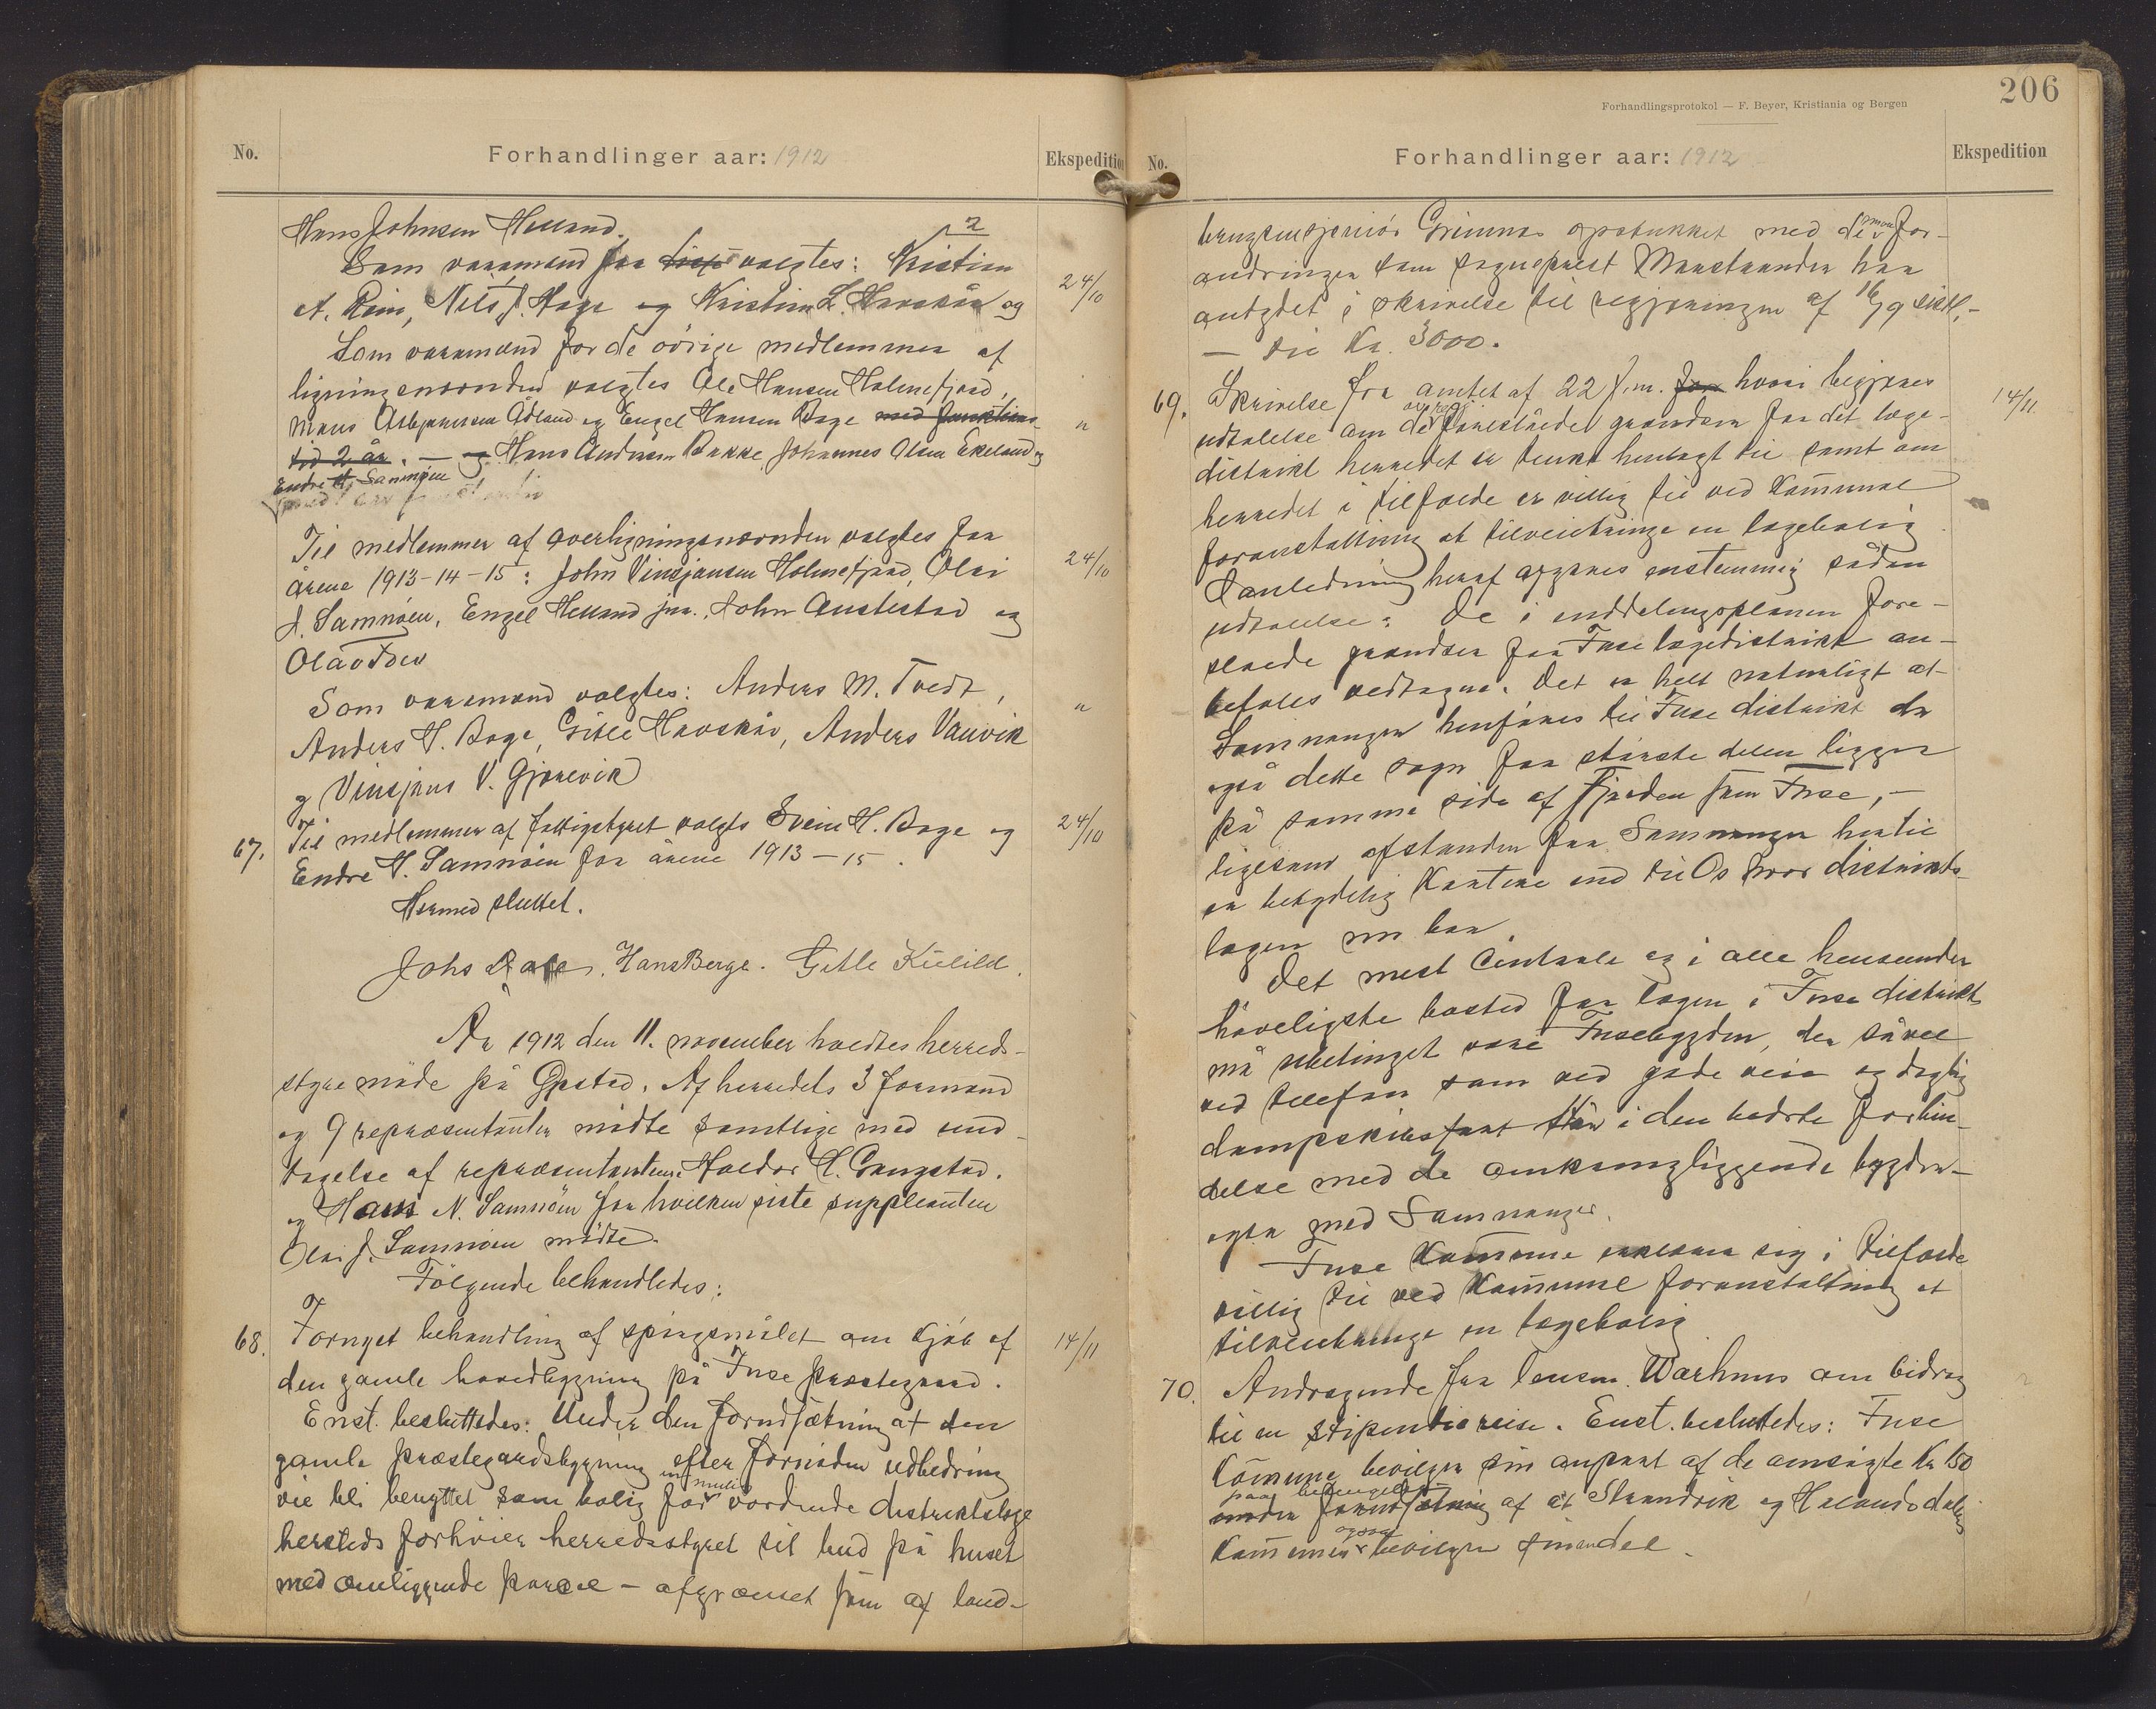 No.
Forhandlinger aar: 1912
Ekspedition
Hans Johnsen Helland.
Som varamænd for disse valgtes: Kristian
A. Rein, Nils J. Hage og Kristian L. Havskår og
24/10
Som varamænd for de övrige medlemmer af
ligningsnævnden valgtes Ole Hansen Holmefjord,
Mons Asbjørnsen Ådland og Engel Hansen Bage med funktions-
"
tid 2 år. — og Hans Andreas Bakke, Johannes Olsen Ekeland og
Endre H. Samnøen
Til medlemmer af overligningsnævnden valgtes for
årene 1913-14-15: John Vinsjansen Holmefjord, Olai
24/10
J. Samnøen, Engel Helland jnr., John Austestad og
Olav
Som varamænd valgtes: Anders M. Tvedt,
"
Anders H. Bage, Gitle Havskår, Anders Vauvik
og Vinsjans V. Gjerevik
67. Til medlemmer af fattigstyret valgts Svein H. Bage og
24/10
Endre H. Samnøen for årene 1913-15.
Hermed sluttet.
Johs Dale. Hans Berge. Gitle Kilild.
År 1912 den 11. november holdtes herreds-
styremöde på Opstad. Af herredets 3 formænd
og 9 repræsentanter mödte samtlige med und-
tagelse af repræsentanterne Haldor H. Gangstad.
og Hans N. Samnöen for hvilken siste suppleanten
Olai J. Samnöen mödte.
Fölgende behandledes:
68. Fornyet behandling af spörgsmålet om kjöb af
14/11
den gamle hovedbygning på Fuse præstegaard.
Enst. besluttedes: Under den forudsætning at den
gamle præstegardsbygning efter fornöden udbedring
vil bli benyttet som bolig for en mulig vordende distriktslæge
hersteds forhöier herredsstyret sit bud på huset
med omliggende parcel — afgrænset som af land-
206
Forhandlingsprotokol — F. Beyer, Kristiania og Bergen
No.
Forhandlinger aar: 1912
Ekspedition
brugsingeniör Grimnes opstukket med de smaa for-
andringer som sogneprest Monstranden har
antydet i skrivelse til regjeringen af 16/9 sidstl. —
— til Kr. 3000.
69. Skrivelse fra amtet af 22 f.m. for hvori begjæres
14/11
udtalelse om de foreslåede grændser for det læge-
distrikt herredet er tænkt henlagt til samt om
herredet i tilfælde er villig til ved kommunal
foranstaltning at tilveiebringe en lægebolig
I anledning heraf afgaves enstemmig sådan
udtalelse: De i inddelingsplanen fore-
slaede grændser for Fuse lægedistrikt an-
befales vedtagne. Det er helt naturligt at
Samnanger henföres til Fuse distrikt da
også dette sogn for störste delen ligger
på samme side af fjorden som Fuse, —
ligesom afstanden fra Samnanger hertil
er betydelig kortere end til Os hvor distrikts-
lægen nu bor.
Det mest centrale og i alle henseender
höveligste bosted for lægen i Fuse distrikt
må ubetinget være Fusebygden, der såvel
ved telefon som ved gode veie og daglig
dampskibsfart står i den bedste forbin-
delse med de omkringliggende bygder —
også med Samnanger.
Fuse Kommune erklærer sig i tilfælde
villig til ved kommunal foranstaltning at
tilveiebringe en lægebolig
70. Andragende fra lensm. Warhuus om bidrag
til en stipendiereise. Enst. besluttedes: Fuse
Kommune bevilger sin anpart af de ansögte Kr 150
paa betingelse
under forudsætning af at Strandvik og Hålandsdalens
Kommuner ogsaa bevilger sin andel.